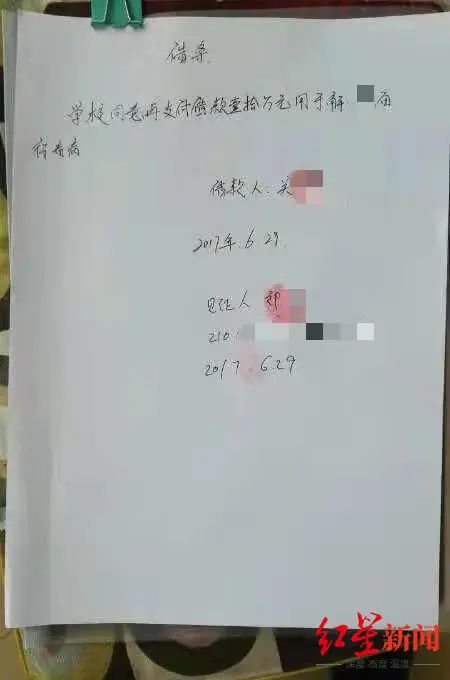 借条
学校同意再支付借款壹拾万元用于解 后
待看病
借款人:关
2017年.6.29.
见证人 郑
210
2017.6.29
红星新闻
深度 态度 温度